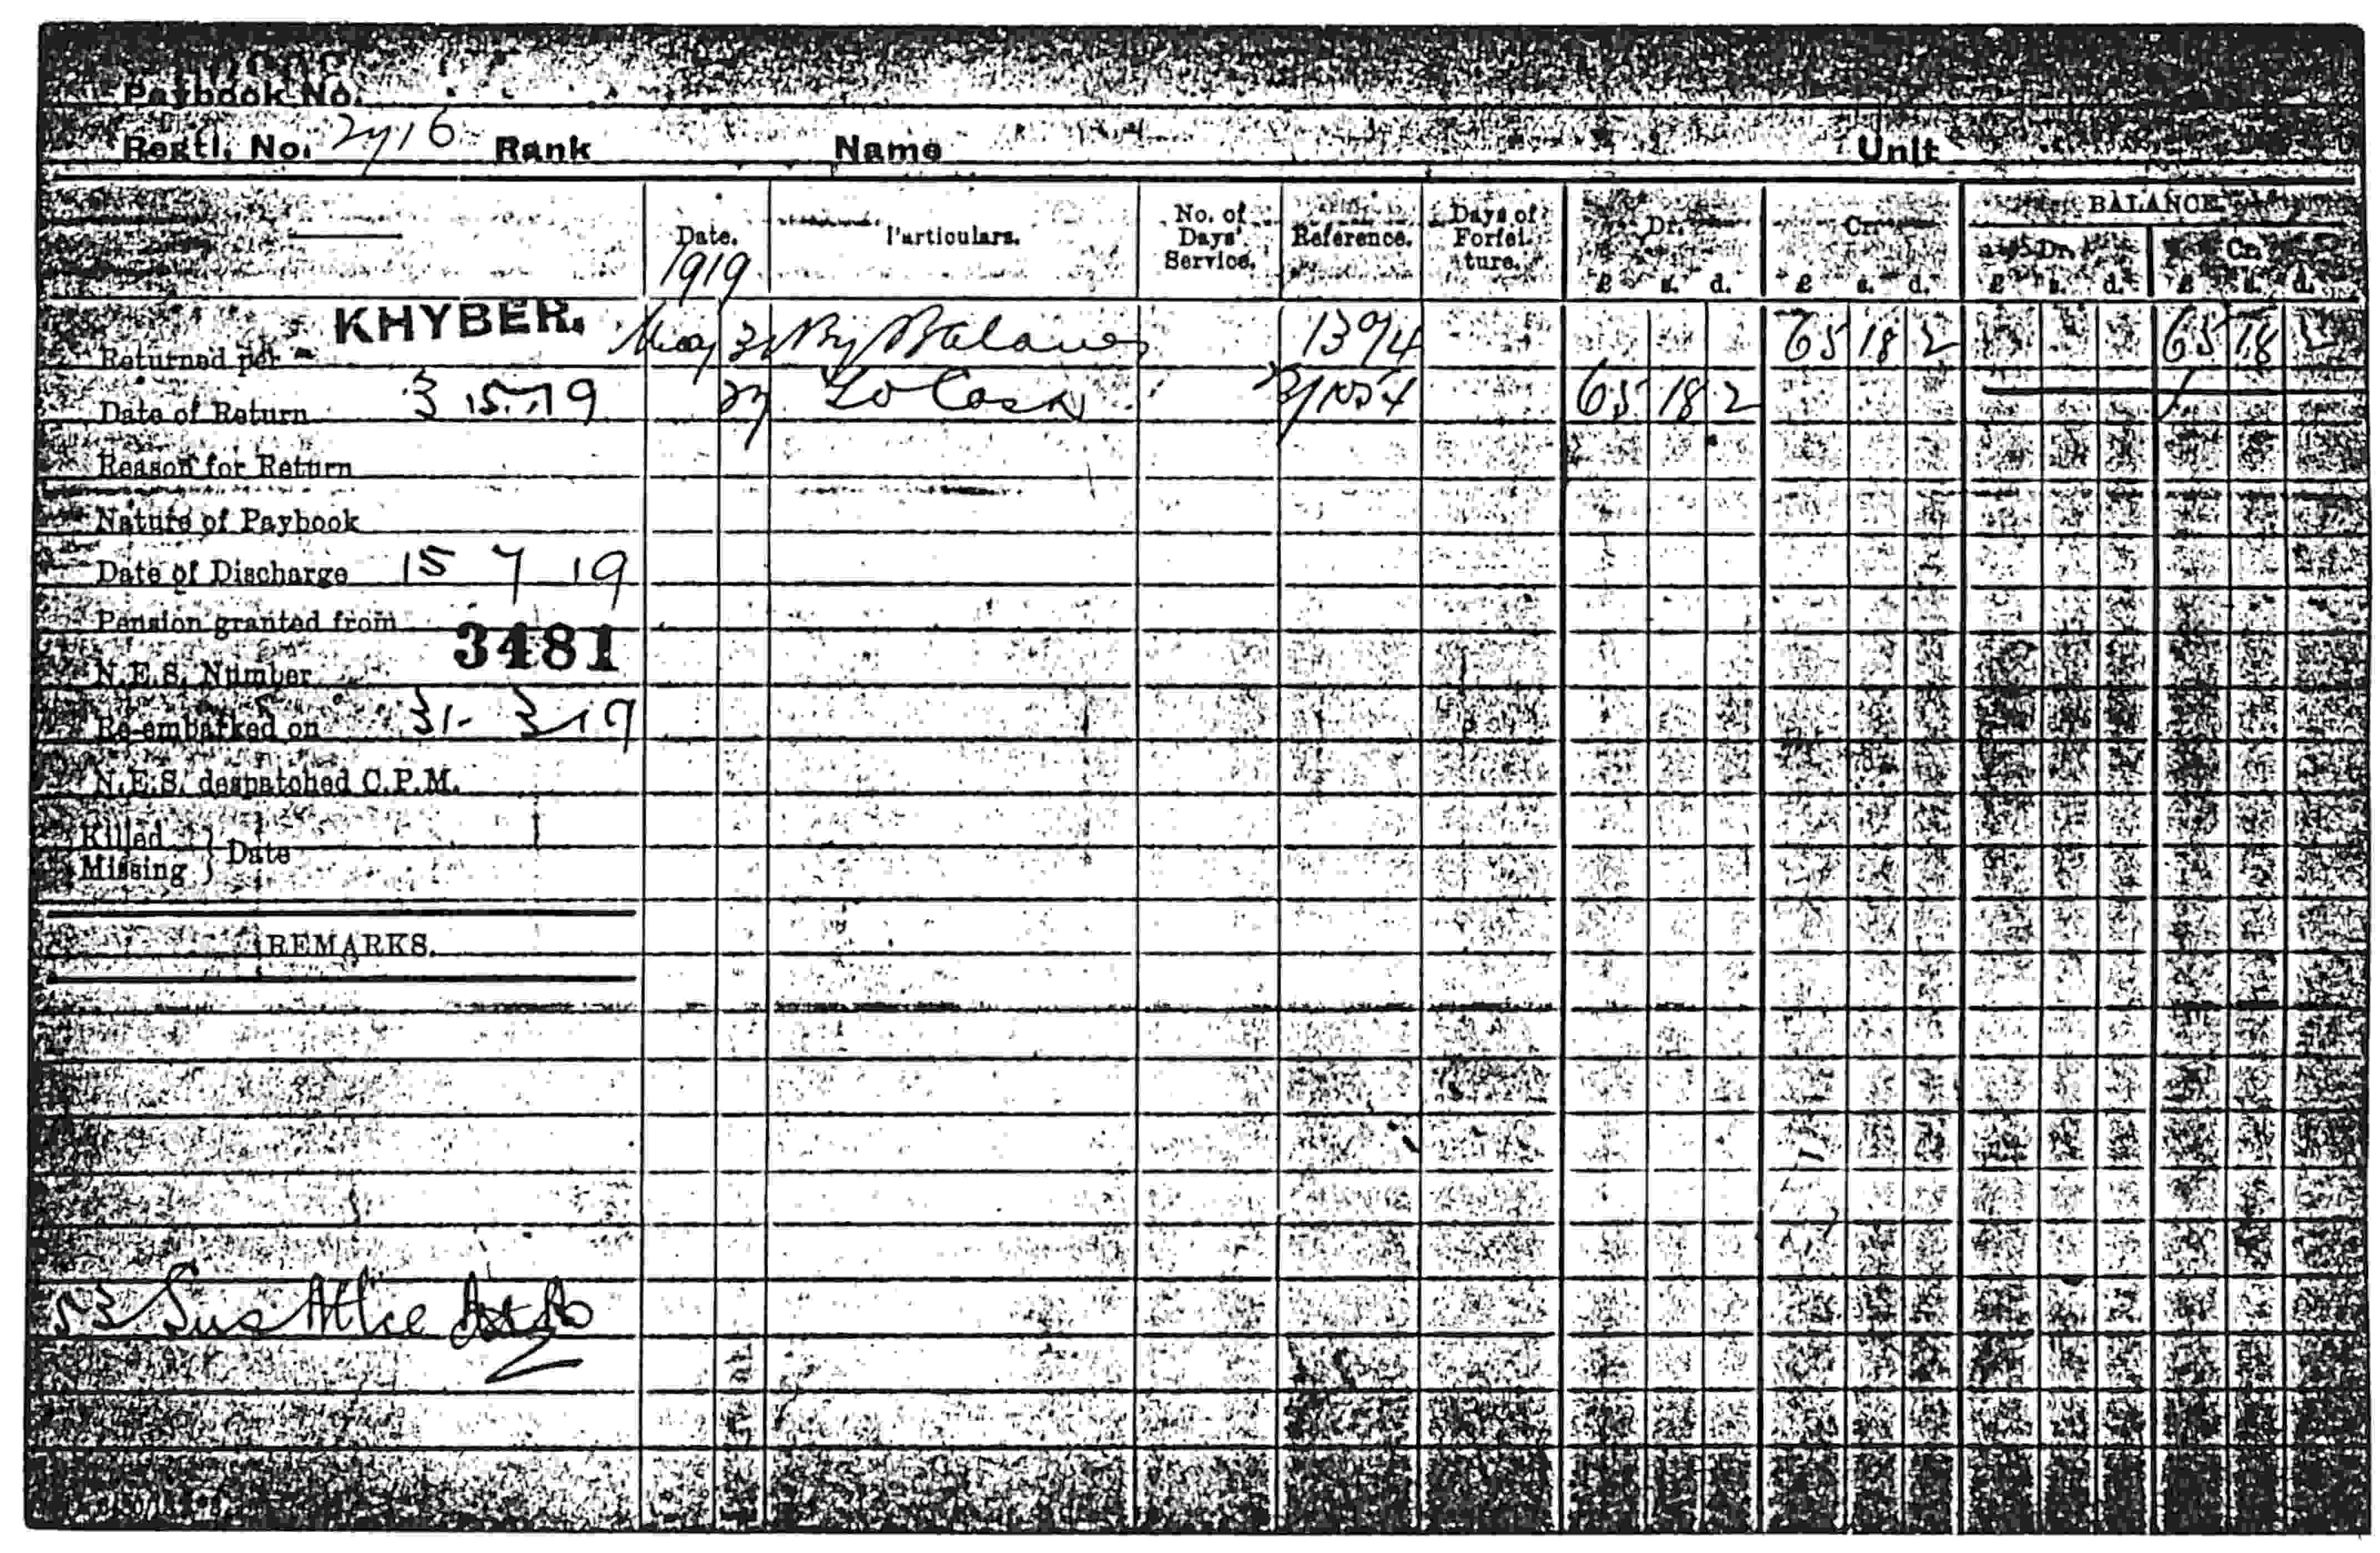 Paybook No.
Regtl. No. 2716 Rank Name Unit
Date. Particulars. No. of Days' Service. Reference. Days of Forfeiture. Dr. Cr. BALANCE.
Dr. Cr.
1919 £ s. d. £ s. d. £ s. d. £ s. d.
Returned per KHYBER. May By Balance 65 18 2 65 18 2
Date of Return 3.5.19 27 To Cash 65 18 2
Reason for Return
Nature of Paybook
Date of Discharge 15 7 19
Pension granted from
N.E.S. Number 3481
Re-embarked on 31-3-19
N.E.S. despatched C.P.M.
Killed
Missing } Date
REMARKS.
53